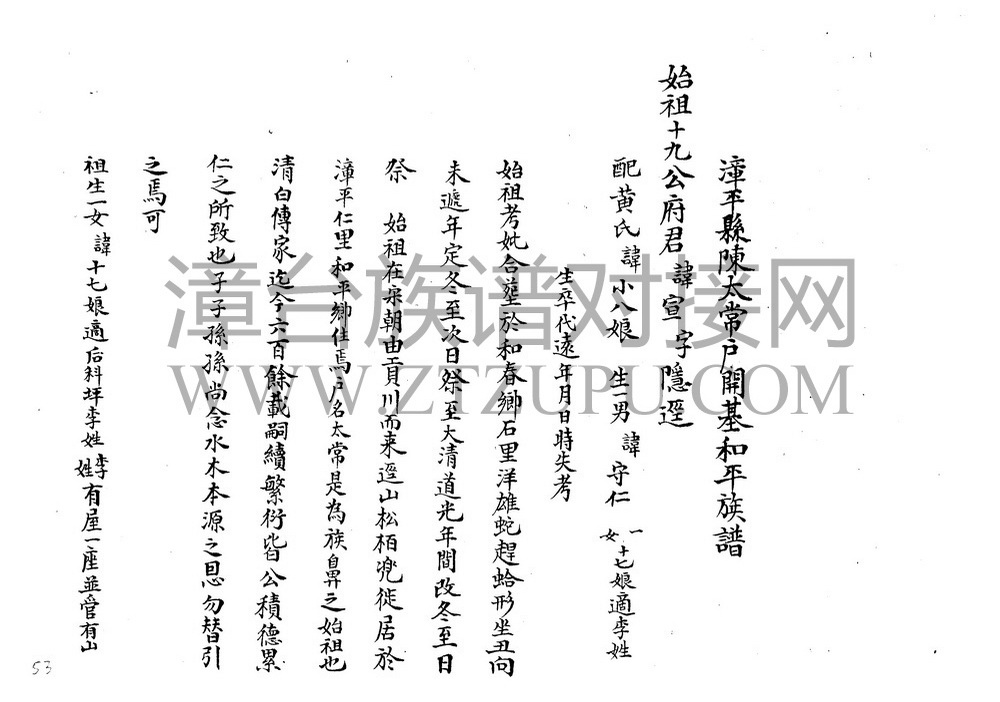 漳平縣陳太常戶開基和平族譜
始祖十九公府君 諱宣 字隱遯
配黃氏 諱小八娘 生一男 諱守仁 一女 十七娘適李姓
生卒代遠年月日時失考
始祖考妣合塟於和春鄉石里洋雄蛇趕蛤形坐丑向
未遞年定冬至次日祭至大清道光年間改冬至日
祭 始祖在宋朝由貢川而来逕山松栢兜徙居於
漳平仁里和平鄉住焉戶名太常是為族鼻之始祖也
清白傳家迄今六百餘載嗣續繁衍皆公積德累
仁之所致也子子孫孫尚念水木本源之思勿替引
之焉可
祖生一女諱十七娘適后科坪李姓 李姓有屋一座並管有山
53
漳台族谱对接网
WWW.ZTZUPU.COM